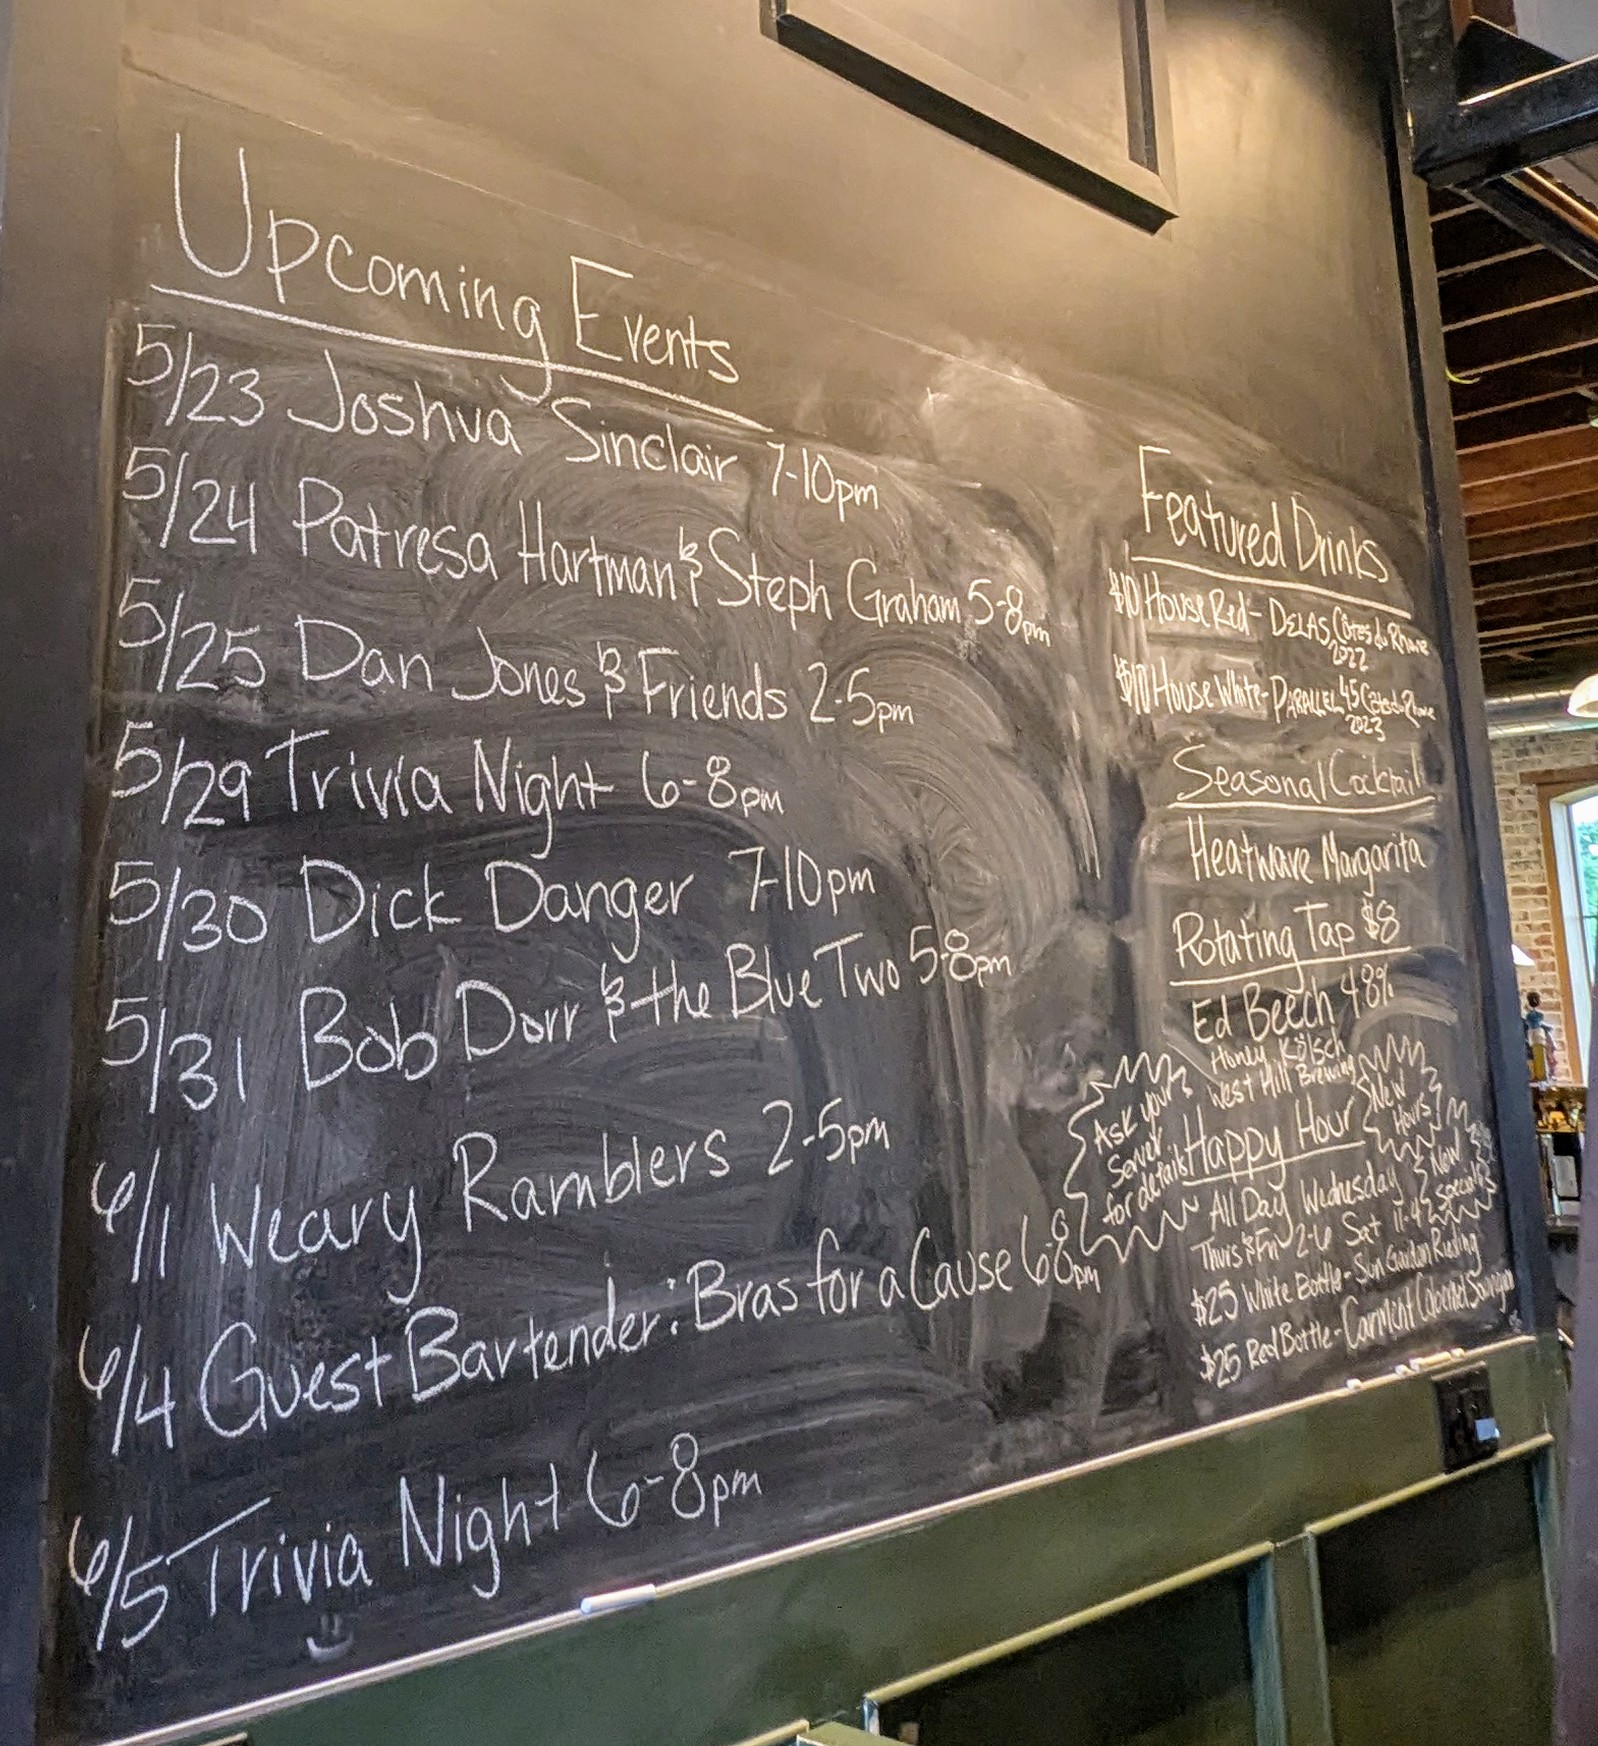 Upcoming Events
5/23 Joshua Sinclair 7-10pm
5/24 Patresa Hartman & Steph Graham 5-8pm
5/25 Dan Jones & Friends 2-5pm
5/29 Trivia Night 6-8pm
5/30 Dick Danger 7-10pm
5/31 Bob Dorr & the Blue Two 5-8pm
6/1 Weary Ramblers 2-5pm
6/4 Guest Bartender: Bras for a Cause 6-8pm
6/5 Trivia Night 6-8pm
Featured Drinks
$10 House Red - DELAS, Côtes du Rhone
2022
$10 House White - PARALLEL 45 Côtes du Rhone
2023
Seasonal Cocktail
Heatwave Margarita
Rotating Tap $8
Ed Beech 4.8%
Honey Kölsch
West Hill Brewing
Ask your
Server
for details
Happy Hour
New
Hours
All Day Wednesday
Thurs & Fri 2-6 Sat 11-4
New
Specials
$25 White Bottle - Sun Garden Riesling
$25 Red Bottle - Carmenet Cabernet Sauvignon